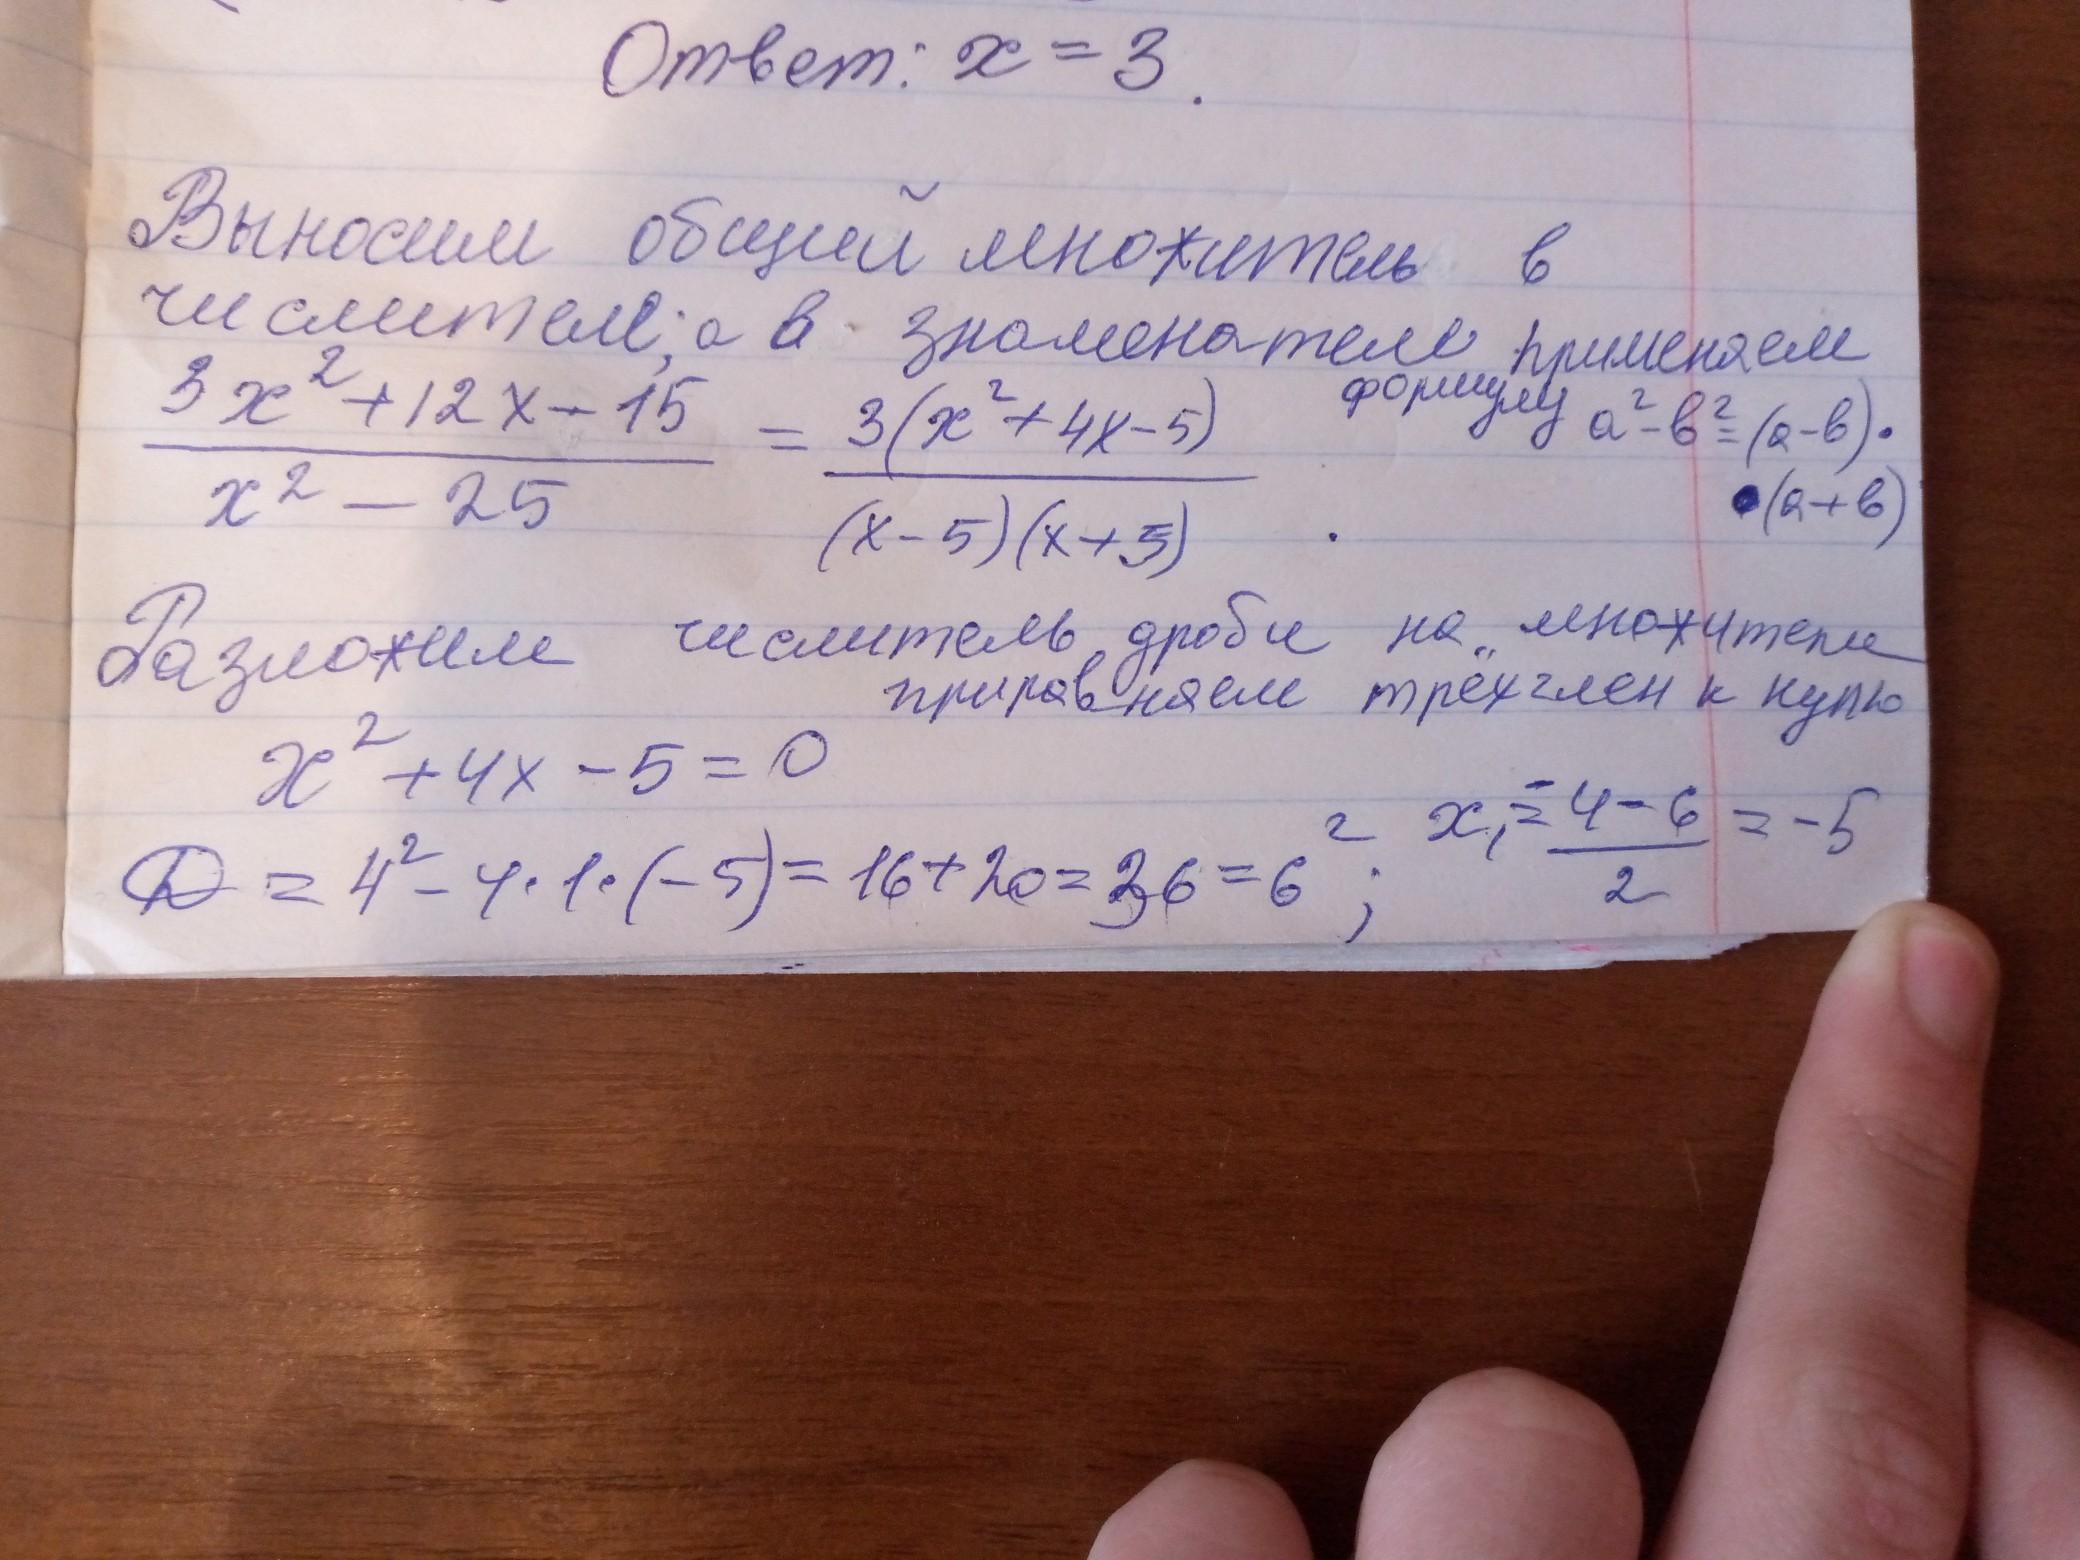 Ответ: x = 3.
Выносим общий множитель в
числителе, а в знаменателе применяем
формулу a² - b² = (a - b) ·
· (a + b)
3x² + 12x - 15 / x² - 25 = 3(x² + 4x - 5) / (x - 5)(x + 5)
Разложим числитель дроби на множители
приравняем трёхчлен к нулю
x² + 4x - 5 = 0
D = 4² - 4 · 1 · (-5) = 16 + 20 = 36 = 6² ; x₁ = -4 - 6 / 2 = -5